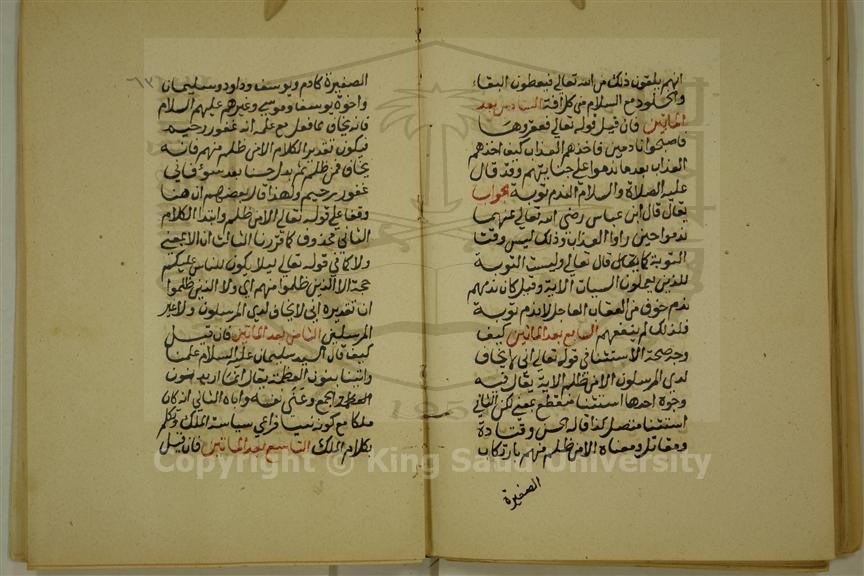 انهم يلقون ذلك من الله تعالى فيعطون البقاء
والخلود مع السلام من كل آفة السادس بعد
الماتين فان قيل قوله تعالى فعقروها
فاصبحوا نادمين فاخذهم العذاب كيف اخذهم
العذاب بعد ما ندموا على جنايتهم وقد قال
عليه الصلاة والسلام الندم توبة الجواب
يقال قال ابن عباس رضي الله تعالى عنهما
ندموا حين راوا العذاب وذلك ليس وقت
التوبة كما قال تعالى وليست التوبة
للذين يعملون السيات الاية وقيل كان ندمهم
ندم خوف من العقاب العاجل لا ندم توبة
فلذلك لم ينفعهم السابع بعد الماتين كيف
وجه صحة الاستثنا في قوله تعالى اني لا يخاف
لدي المرسلون الا من ظلم الاية يقال فيه
وجوه احدها استثنا منقطع بمعنى لكن الثاني
استثنا متصل كذا قاله الحسن وقتادة
ومقاتل ومعناه الا من ظلم منهم بارتكاب
الصغيرة
الصغيرة كادم ويوسف وداود وسليمان
واخوة يوسف وموسى وغيرهم عليهم السلام
فانه يخاف مما فعل مع علمه انه غفور رحيم
فيكون تقدير الكلام الا من ظلم منهم فانه
يخاف فمن ظلم ثم بدل حسنا بعد سوء فاني
غفور رحيم ولهذا قال بعضهم ان هنا
وقفا على قوله تعالى الا من ظلم وابتدا الكلام
الثاني محذوف كما قررنا الثالث ان الا بمعنى
ولا كما في قوله تعالى ليلا يكون للناس عليكم
حجة الا الذين ظلموا منهم اي ولا الذين ظلموا
ان تقديره اني لا يخاف لدي المرسلون ولا غير
المرسلين الثامن بعد الماتين فان قيل
كيف قال السيد سليمان عليه السلام علمنا
واتينا بنون العظمة يقال انه اريد بنون
الجمع وعنى نفسه واباه الثاني انه كان
ملكا مع كونه نبيا فراعى سياسة الملك وتكلم
بكلام الملك التاسع بعد الماتين فان قيل
Copyright © King Saud University
1957